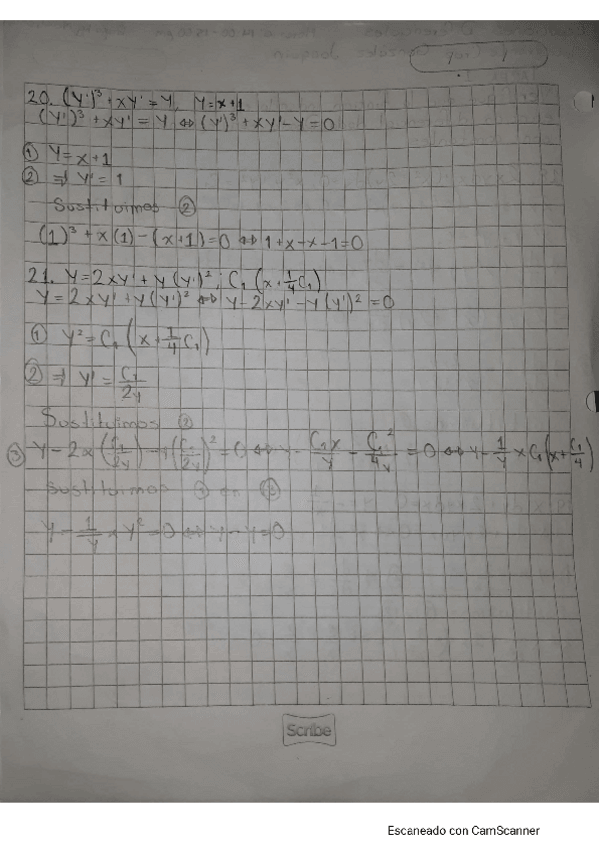 20. (Y')³ + xy' = Y, Y = x+1
(Y')³ + xY' = Y ⇔ (Y')³ + xY' - Y = 0
① Y = x+1
② ⇒ Y' = 1
Sustituimos ②
(1)³ + x(1) - (x+1) = 0 ⇔ 1+x-x-1=0
21. Y=2xy' + y(y')²; C₁(x+¼C₁)
Y = 2xy' + y(y')² ⇔ y - 2xy' - y(y')² = 0
① Y² = C₁(x + 1/4 C₁)
② ⇒ Y' = C₁/2y
Sustituimos ②
③ Y - 2x(C₁/2y) - y(C₁/2y)² = 0 ⇔ y - C₁x/y - C₁²/4y = 0 ⇔ y - 1/y × C₁(x + C₁/4)
Sustituimos en
Y - 1/y × y² = 0 ⇔ y - y = 0
Scribe
Escaneado con CamScanner